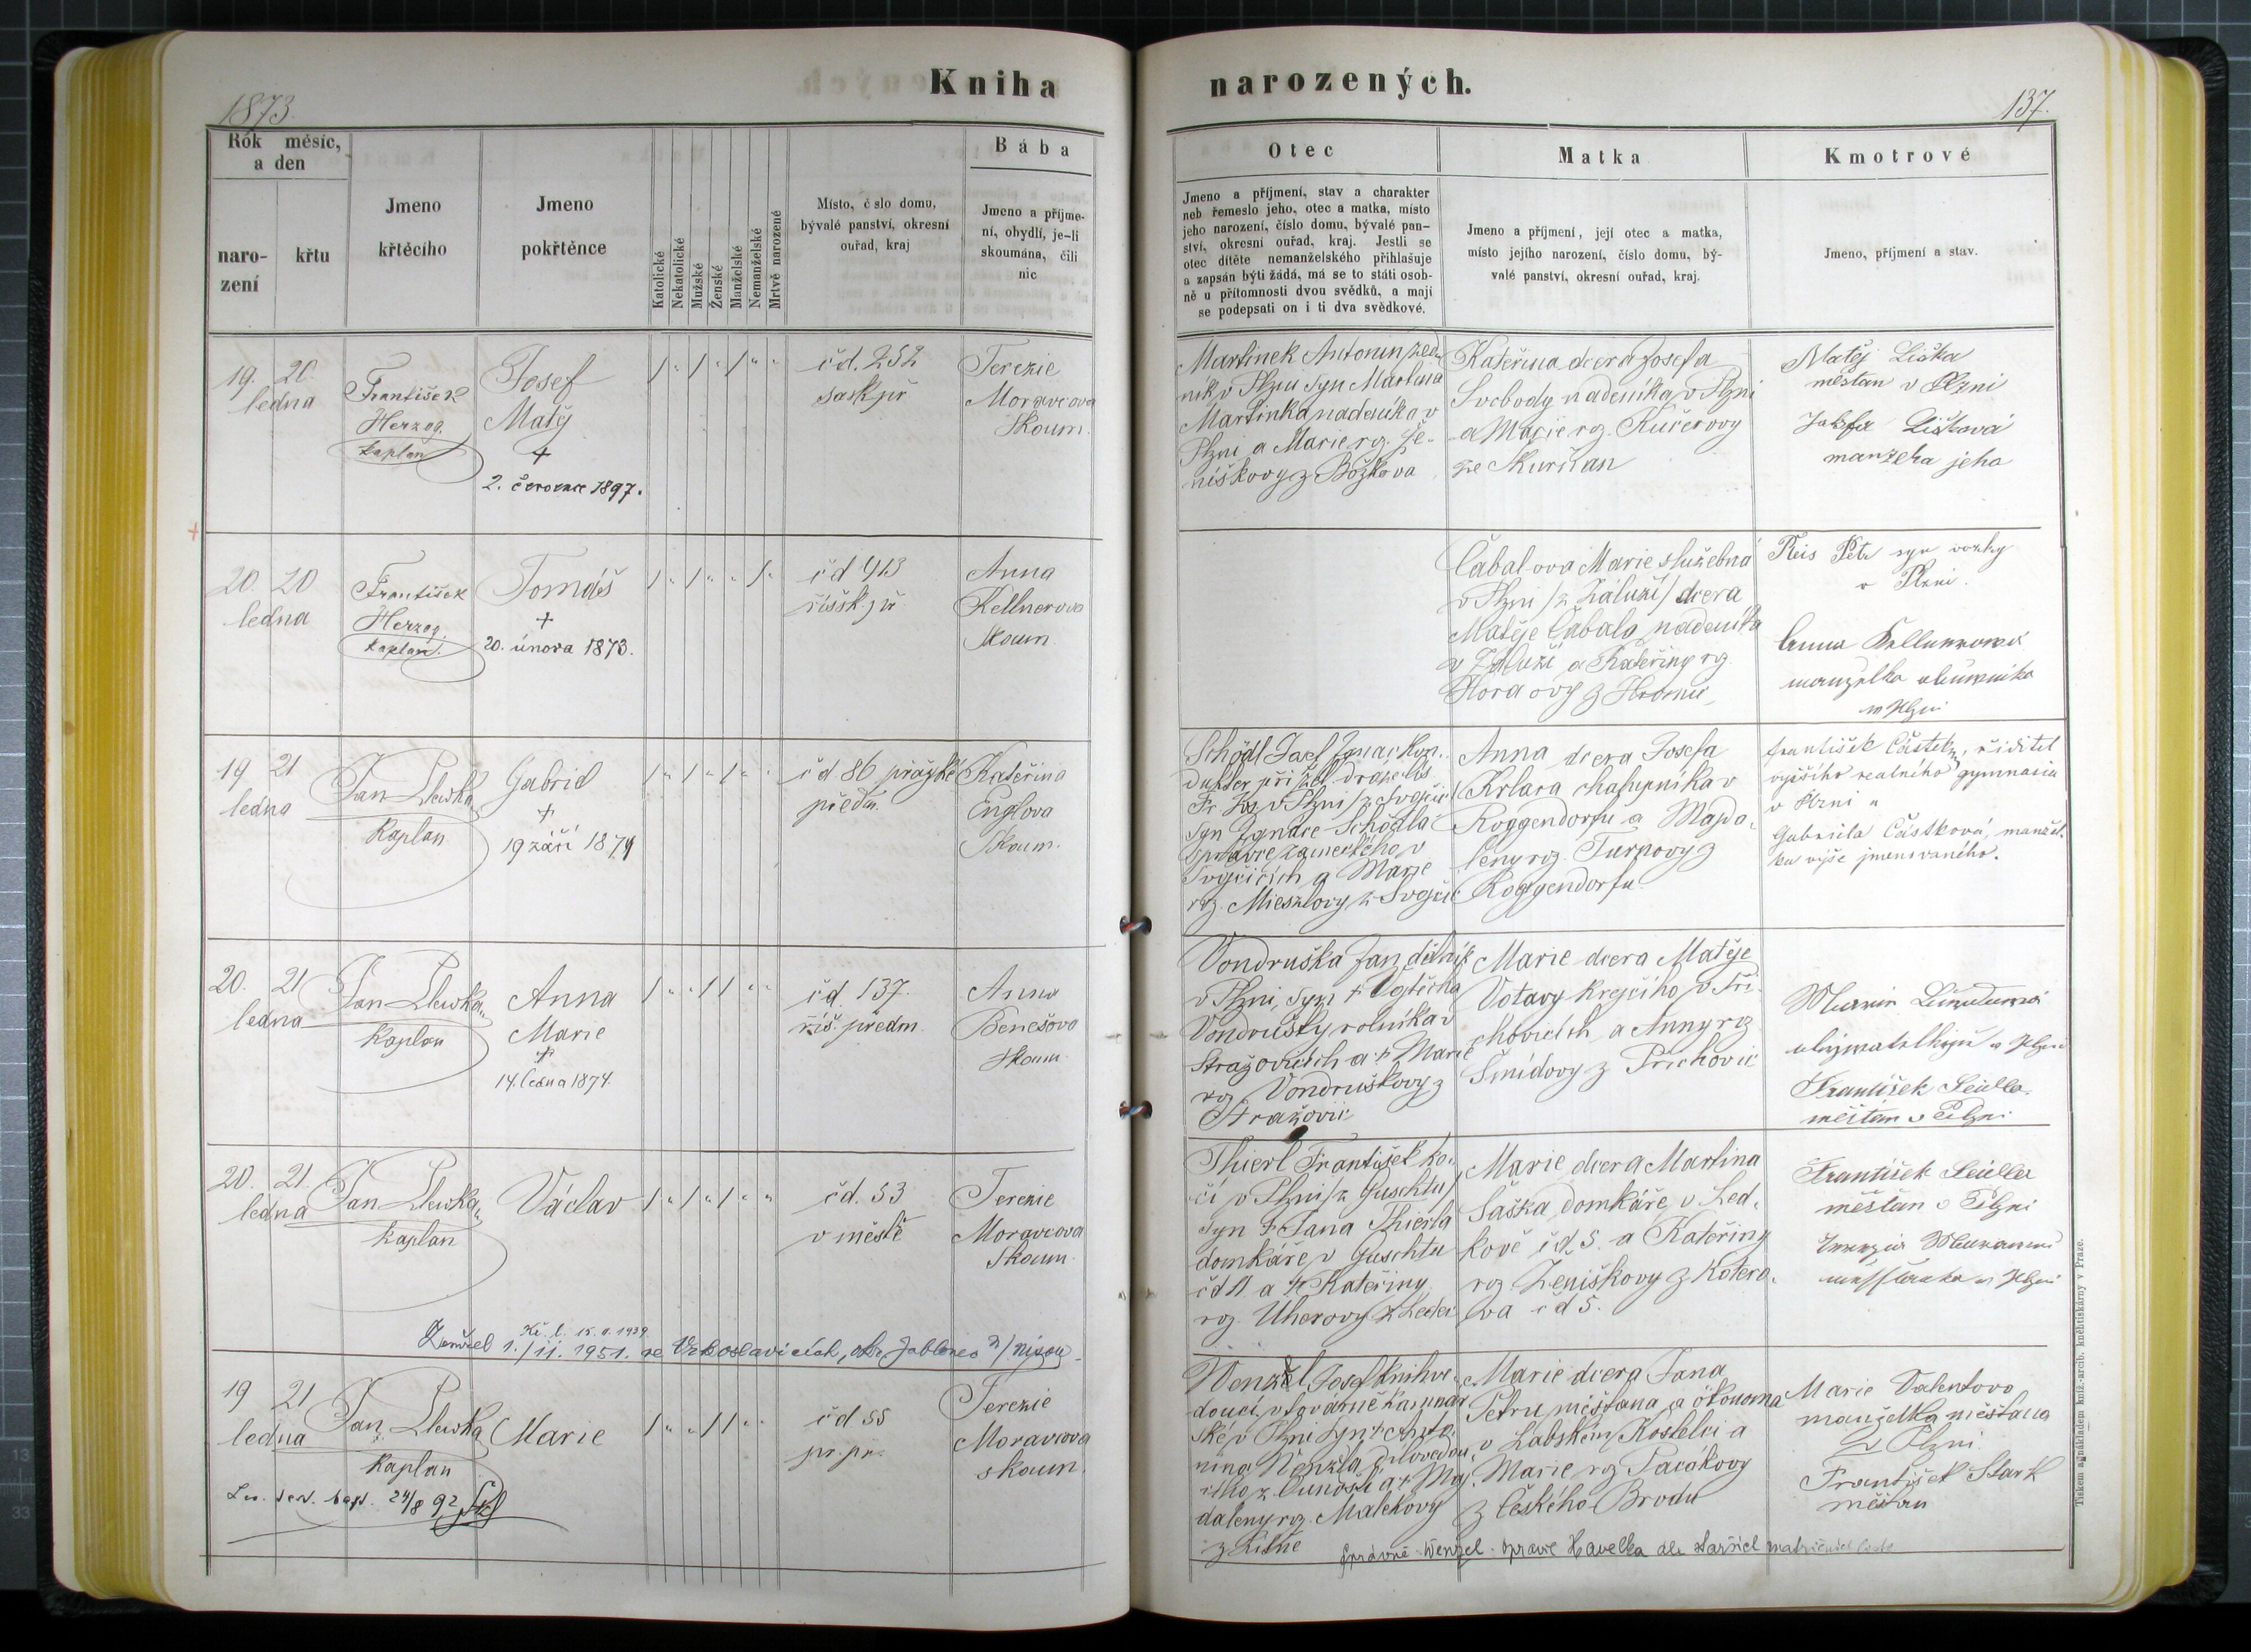 Kniha narozených.
1873.
137.
Rok měsíc, a den
narození
křtu
Jmeno křtěcího
Jmeno pokřtěnce
Katolické
Nekatolické
Mužské
Ženské
Manželské
Nemanželské
Mrtvě narozené
Místo, č slo domu,
bývalé panství, okresní
ouřad, kraj
Bába
Jmeno a příjme-
ní, obydlí, je-li
skoumána, čili
nic
Otec
Jmeno a příjmení, stav a charakter
neb řemeslo jeho, otec a matka, místo
jeho narození, číslo domu, bývalé pan-
ství, okresní ouřad, kraj. Jestli se
otec dítěte nemanželského přihlašuje
a zapsán býti žádá, má se to státi osob-
ně u přítomnosti dvou svědků, a mají
se podepsati on i ti dva svědkové.
Matka
Jmeno a příjmení, její otec a matka,
místo jejího narození, číslo domu, bý-
valé panství, okresní ouřad, kraj.
Kmotrové
Jmeno, příjmení a stav.
19. 20.
ledna
František
Herzog.
kaplan
Josef
Matěj
+
2. července 1897.
čd. 252
sask. př
Terezie
Moravcova
Skoum.
Martinek Antonin
v Plzni syn Martina
Martinka nadeníka v
Plzni a Marie rz. Že-
níškovy z Božkova
Kateřina dcera Josefa
Svobody nadeníka v Plzni
a Marie rz. Kučerovy
ze Skurňan
Matěj Liška
měštan v Plzni
Josefa Lišková
manželka jeho
20. 20
ledna
František
Herzog.
kaplan.
Tomáš
+
20. února 1873.
čd 913
říšsk. př
Anna
Kellnerova
Skoum
Čabalova Marie služebná
v Plzni /z Záluží/ dcera
Matěje Čabala nadeníka
v Záluží a Kateřiny rz.
z Hromic
Petr syn
v Plzni.
Anna Kellnerová
manželka
v Plzni
19 21
ledna
Jan
Kaplan
Gabriel
+
19 září 1874
čd 86 pražské
předm.
Kateřina
Englova
Skoum.
Schödl Josef Ignac Kon-
duktér při žel. dráze Cís
Fr. Jos. v Plzni /z Svojšic/
syn Ignáce Schödla
správce zameckého v
Svojšicích a Marie
rz. Mieszlovy z Svojšic
Anna dcera Josefa
chalupníka v
Roggendorfu a Majda-
leny rz. Turnovy z
Roggendorfu
František Částek, řiditel
vyššího realního gymnasia
v Plzni a
Gabriela Částková, manžel-
ka výše jmenovaného.
20. 21
ledna
Jan
Kaplan
Anna
Marie
+
14. ledna 1874.
čd. 137.
říš. předm.
Anna
Benešova
skoum.
Vondruška Jan dělník
v Plzni, syn + Vojtěcha
Vondrušky rolníka v
Stražovicích a + Marie
rz. Vondruškovy z
Stražovic
Marie dcera Matěje
Votavy krejčího v Při-
chovicích a Anny rz
Šmídovy z Přichovic
Marie
v Plzni
František
měštan v Plzni
20. 21.
ledna
Jan
Kaplan
Václav
čd. 53
v městě
Terezie
Moravcova
Skoum.
Thierl František ko-
čí v Plzni /z Guschtu/
syn + Jana Thierla
domkáře v Guschtu
čd 11 a + Kateřiny
rz. Uherovy z Ledec
Marie dcera Martina
Šaška domkáře v Led-
kově čd 5. a Kateřiny
rz Ženíškovy z Kotero-
va čd 5.
František
měštan v Plzni
v Plzni
Kř. l. 15. 11. 1939.
Zemřel 1./11. 1951. ve Vrkoslavicích, okr. Jablonec n/Nisou
19 21
ledna
Jan
Kaplan
Marie
čd 55
pr. př.
Terezie
Moravcova
skoum.
24/8 92
Wenzel Josef knihve-
doucí v továrně kamnář-
ské v Plzni syn + Anto-
nína Wenzla
a + Maj-
daleny rz. Malekovy
z Litně
Marie dcera Jana
Petru měštana a ökonoma
v Labském Kostelci a
Marie rz Pacákovy
z Českého Brodu
Marie Valentova
manželka měštana
v Plzni
František Stark
měštan
správně Wenzel
Tiskem a nákladem kníž.-arcib. kněhtiskárny v Praze.